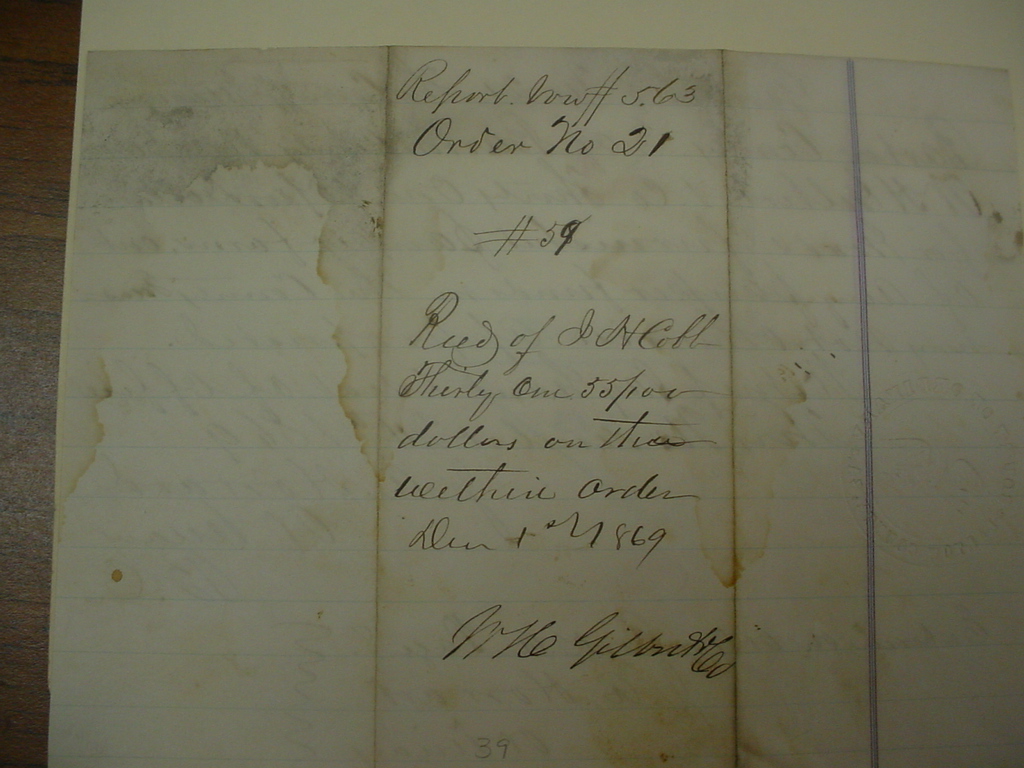 Report. Vow # 5.63
Order No 21
# 59
Recd of J H Cobb
Thirty One 55/100
dollars on the
within order
Decr 1st 1869
W H Gilbert & Co
39